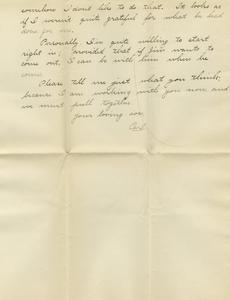 somehow I don't like to do that. It looks as
if I weren't quite grateful for what he had
done for me.
Personally I'm quite willing to start
right in, provided that if Jim wants to
come out, I can be with him when he
comes.
Please tell me just what you think,
because I am working with you now and
we must pull together.
your loving son,
Carl